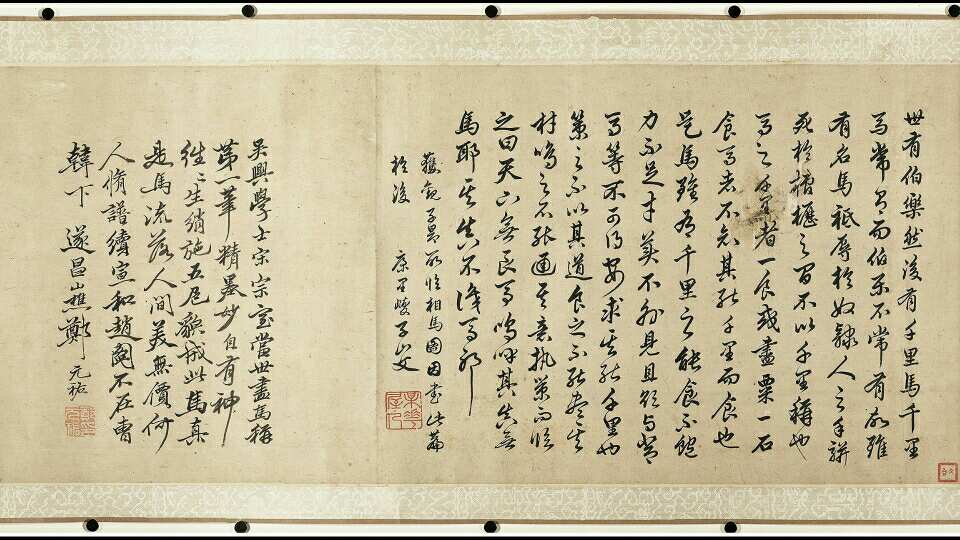 世有伯樂然後有千里馬千里
馬常有而伯樂不常有故雖
有名馬祗辱於奴隸人之手駢
死於槽櫪之間不以千里稱也
馬之千里者一食或盡粟一石
食馬者不知其能千里而食也
是馬雖有千里之能食不飽
力不足才美不外見且欲與常
馬等不可得安求其能千里也
策之不以其道食之不能盡其
材鳴之不能通其意執策而臨
之曰天下無良馬嗚呼其真無
馬耶其真不識馬耶
獲觀子昂所臨相馬圖因書此篇
於後 康里巎子山父
吳興學士宋宗室當世畫馬稱
第一筆精墨妙自有神
往往生綃施五色貌城此馬真
是馬流落人間美無價何
人脩譜續宣和趙圖不在曹
韓下 遂昌山樵鄭元祐